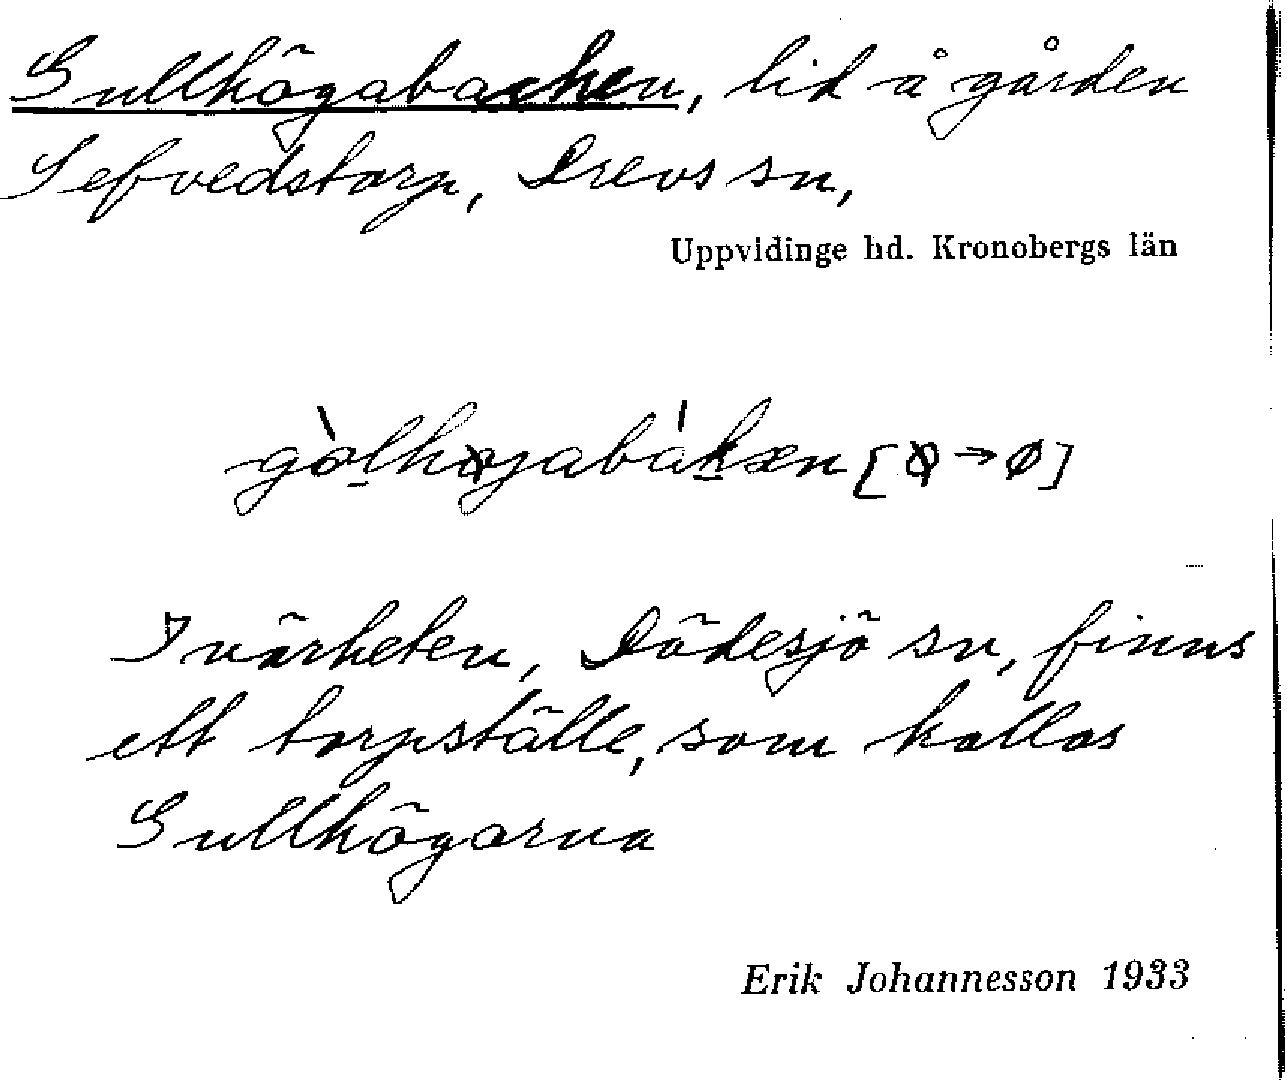 Gullhögabacken, lid å gården
Sefvedstorp, Drevs sn,
Uppvidinge hd. Kronobergs län
gòlhøgabákæn [ꝏ → ø]
I närheten, Dädesjö sn, finns
ett torpställe, som kallas
Gullhögarna
Erik Johannesson 1933